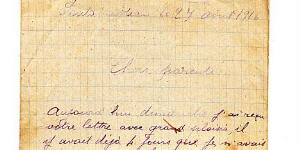 le 27 avril 1916
Chers parents
Aujourd'hui dimanche j'ai reçu
votre lettre avec grand plaisir il
y avait déjà 4 jours que je n'avais